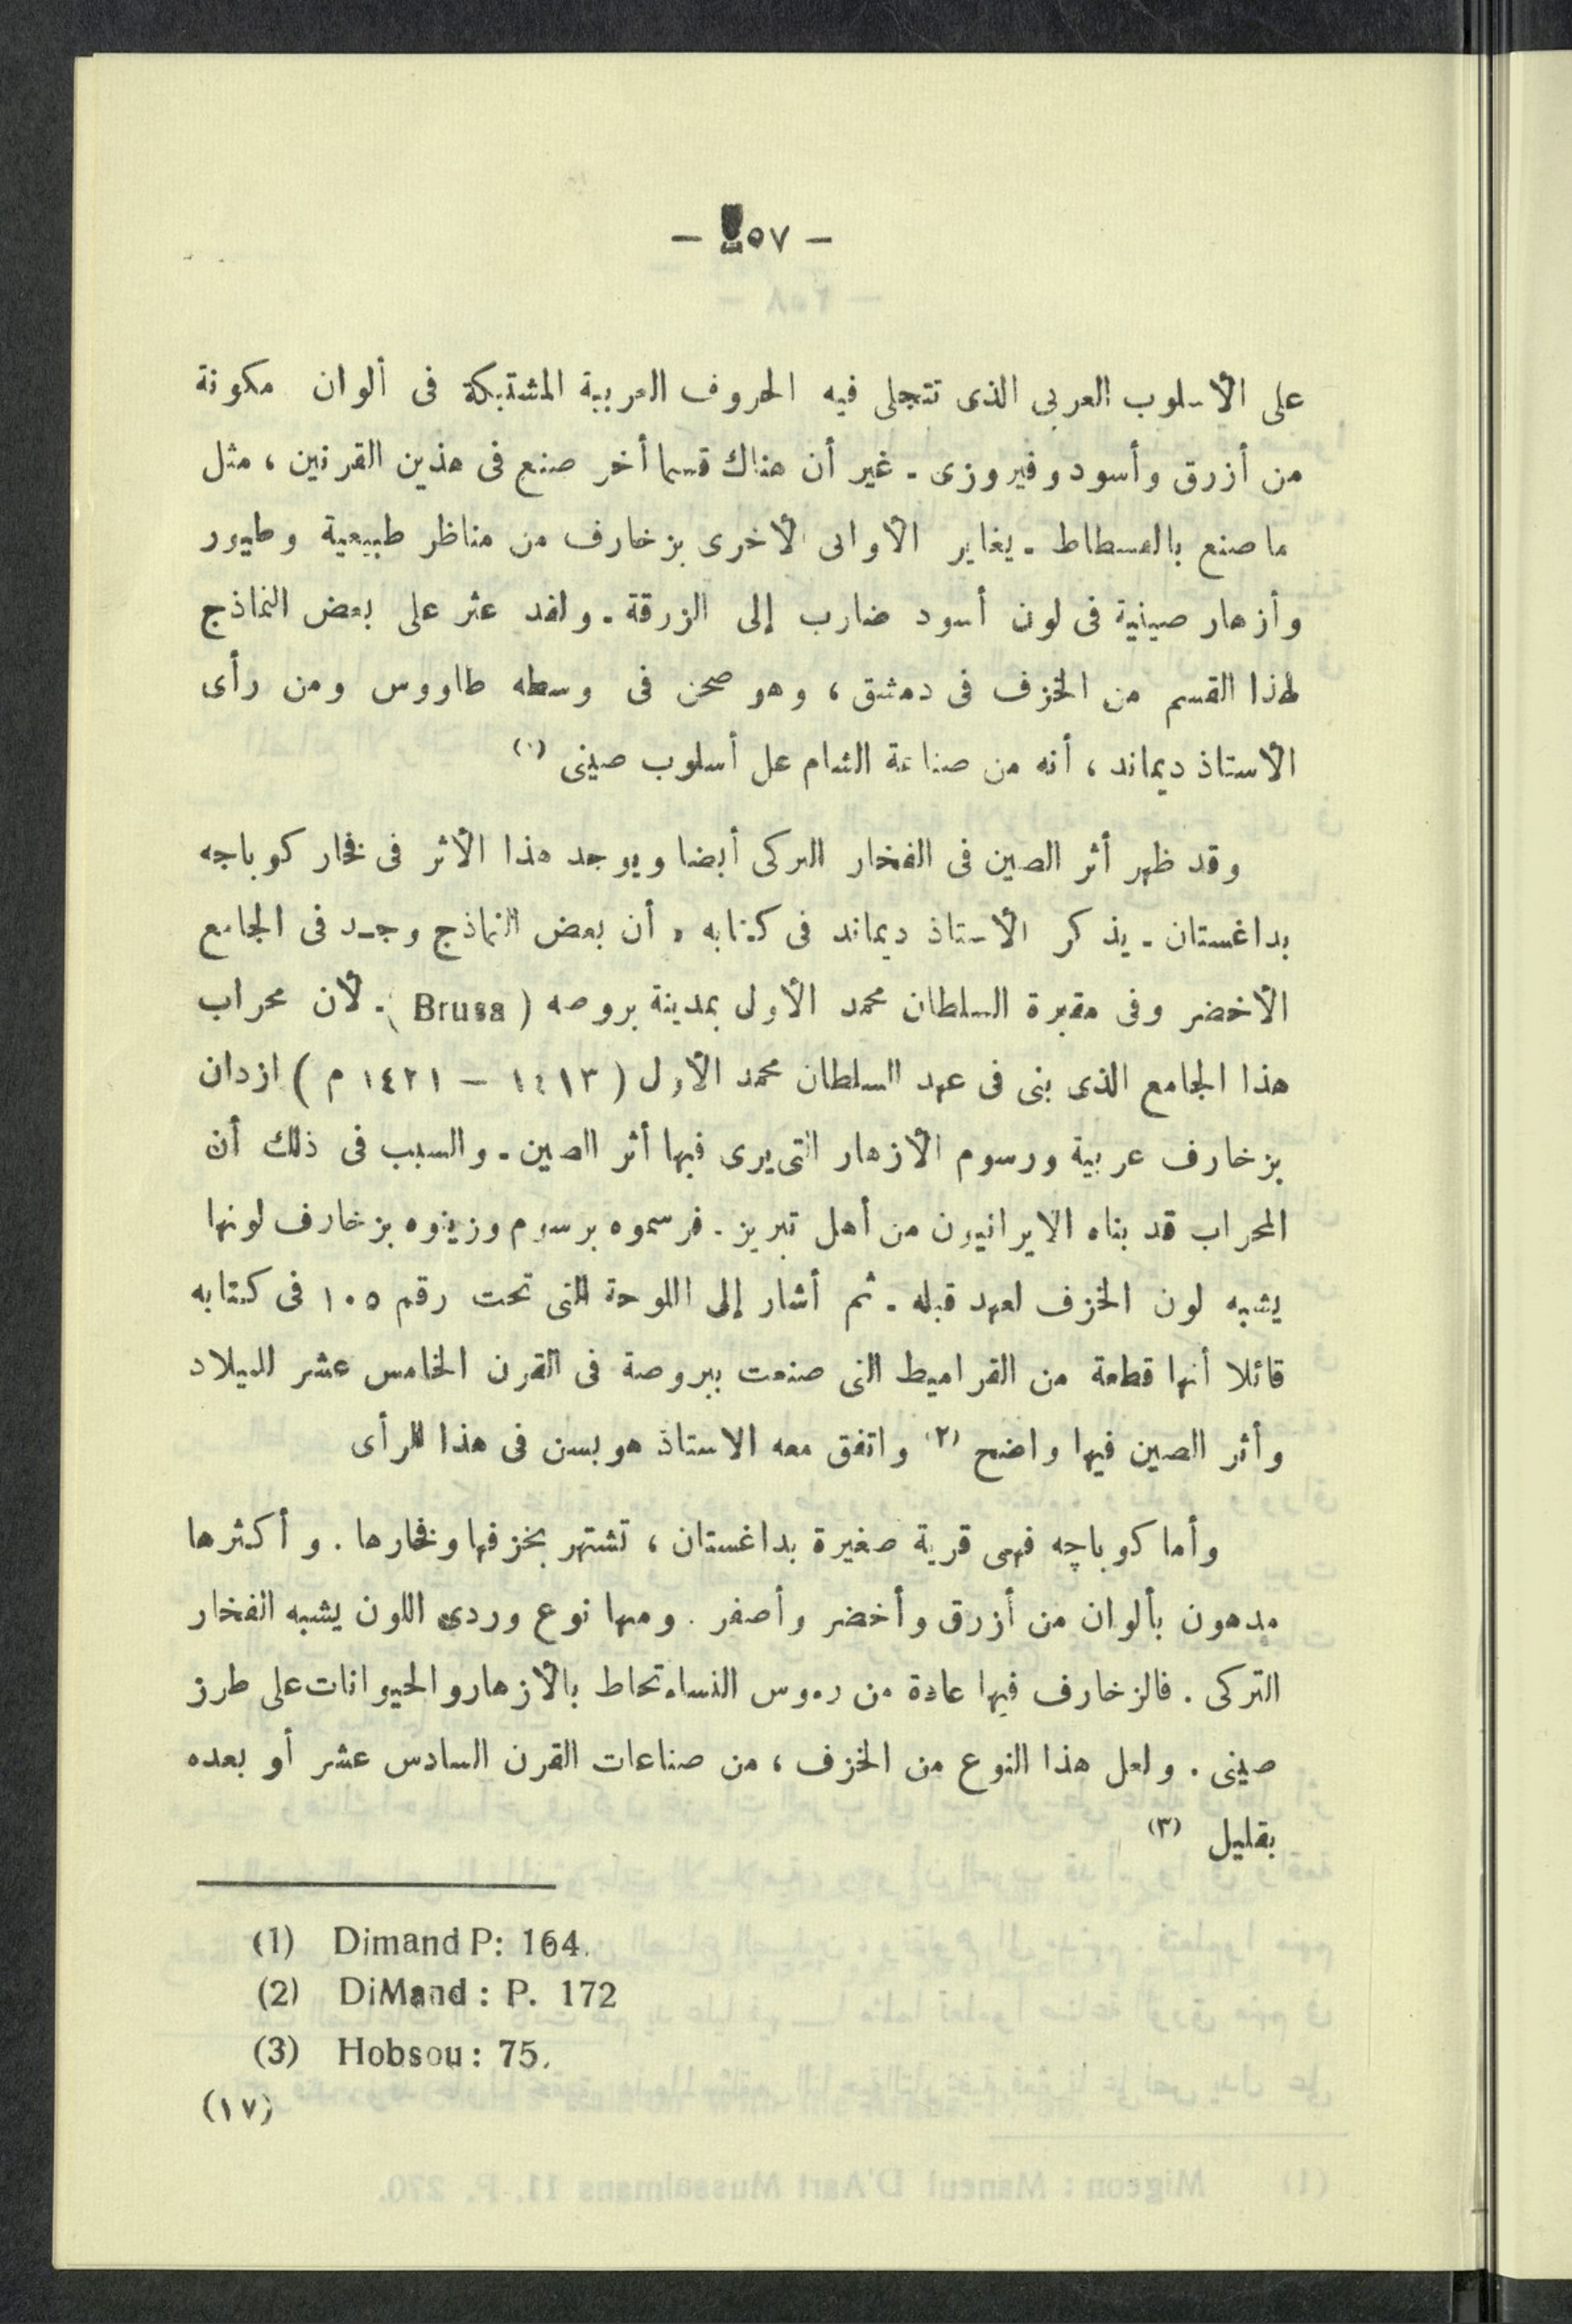 - ٢٥٧ -
على الأسلوب العربى الذى تتجلى فيه الحروف العربية المشتبكة فى ألوان مكونة
من أزرق وأسود وفيروزى . غير أن هناك قسما أخر صنع فى هذين القرنين ، مثل
ما صنع بالفسطاط . يغاير الأوانى الأخرى بزخارف من مناظر طبيعية وطيور
وأزهار صينية فى لون أسود ضارب إلى الزرقة . ولقد عثر على بعض النماذج
لهذا القسم من الخزف فى دمشق ، وهو صحن فى وسطه طاووس ومن رأى
الأستاذ ديماند ، أنه من صناعة الشام على أسلوب صينى (١)
وقد ظهر أثر الصين فى الفخار التركى أيضا ويوجد هذا الأثر فى فخار كوباجه
بداغستان . يذكر الأستاذ ديماند فى كتابه ، أن بعض النماذج وجد فى الجامع
الأخضر وفى مقبرة السلطان محمد الأولى بمدينة بروصه ( Brusa ) . لأن محراب
هذا الجامع الذى بنى فى عهد السلطان محمد الأول ( ١٤١٣ – ١٤٢١ م ) ازدان
بزخارف عربية ورسوم الأزهار التى يرى فيها أثر الصين . والسبب فى ذلك أن
المحراب قد بناه الايرانيون من أهل تبريز . فرسموه برسوم وزينوه بزخارف لونها
يشبه لون الخزف لعهد قبله . ثم أشار إلى اللوحة التى تحت رقم ١٠٥ فى كتابه
قائلا أنها قطعة من القراميط التى صنعت ببروصة فى القرن الخامس عشر للميلاد
وأثر الصين فيها واضح (٢) واتفق معه الاستاذ هوبسن فى هذا الرأى
وأما كوباچه فهى قرية صغيرة بداغستان ، تشتهر بخزفها وفخارها . وأكثرها
مدهون بألوان من أزرق وأخضر وأصفر . ومنها نوع وردى اللون يشبه الفخار
التركى . فالزخارف فيها عادة من رءوس النساء تحاط بالأزهار والحيوانات على طرز
صينى . ولعل هذا النوع من الخزف ، من صناعات القرن السادس عشر أو بعده
بقليل (٣)
(1) Dimand P: 164.
(2) DiMand : P. 172
(3) Hobsou : 75.
(١٧)